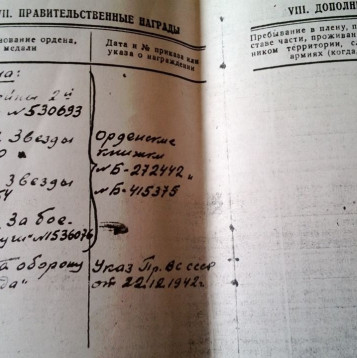 VII. ПРАВИТЕЛЬСТВЕННЫЕ НАГРАДЫ
нование ордена,
медали
Дата и № приказа или
указа о награждении
на:
ойны 2й
№530693
Звезды
Орденские
книжки
№Б-272442 „
№Б-415375
Звезды
За бое-
№1536076
оборону
да"
Указ Пр. ВС СССР
от 22.12.1942г.
VIII. ДОПОЛН
Пребывание в плену,
ставе части, прожива
ником территории, сл
армиях (когда,